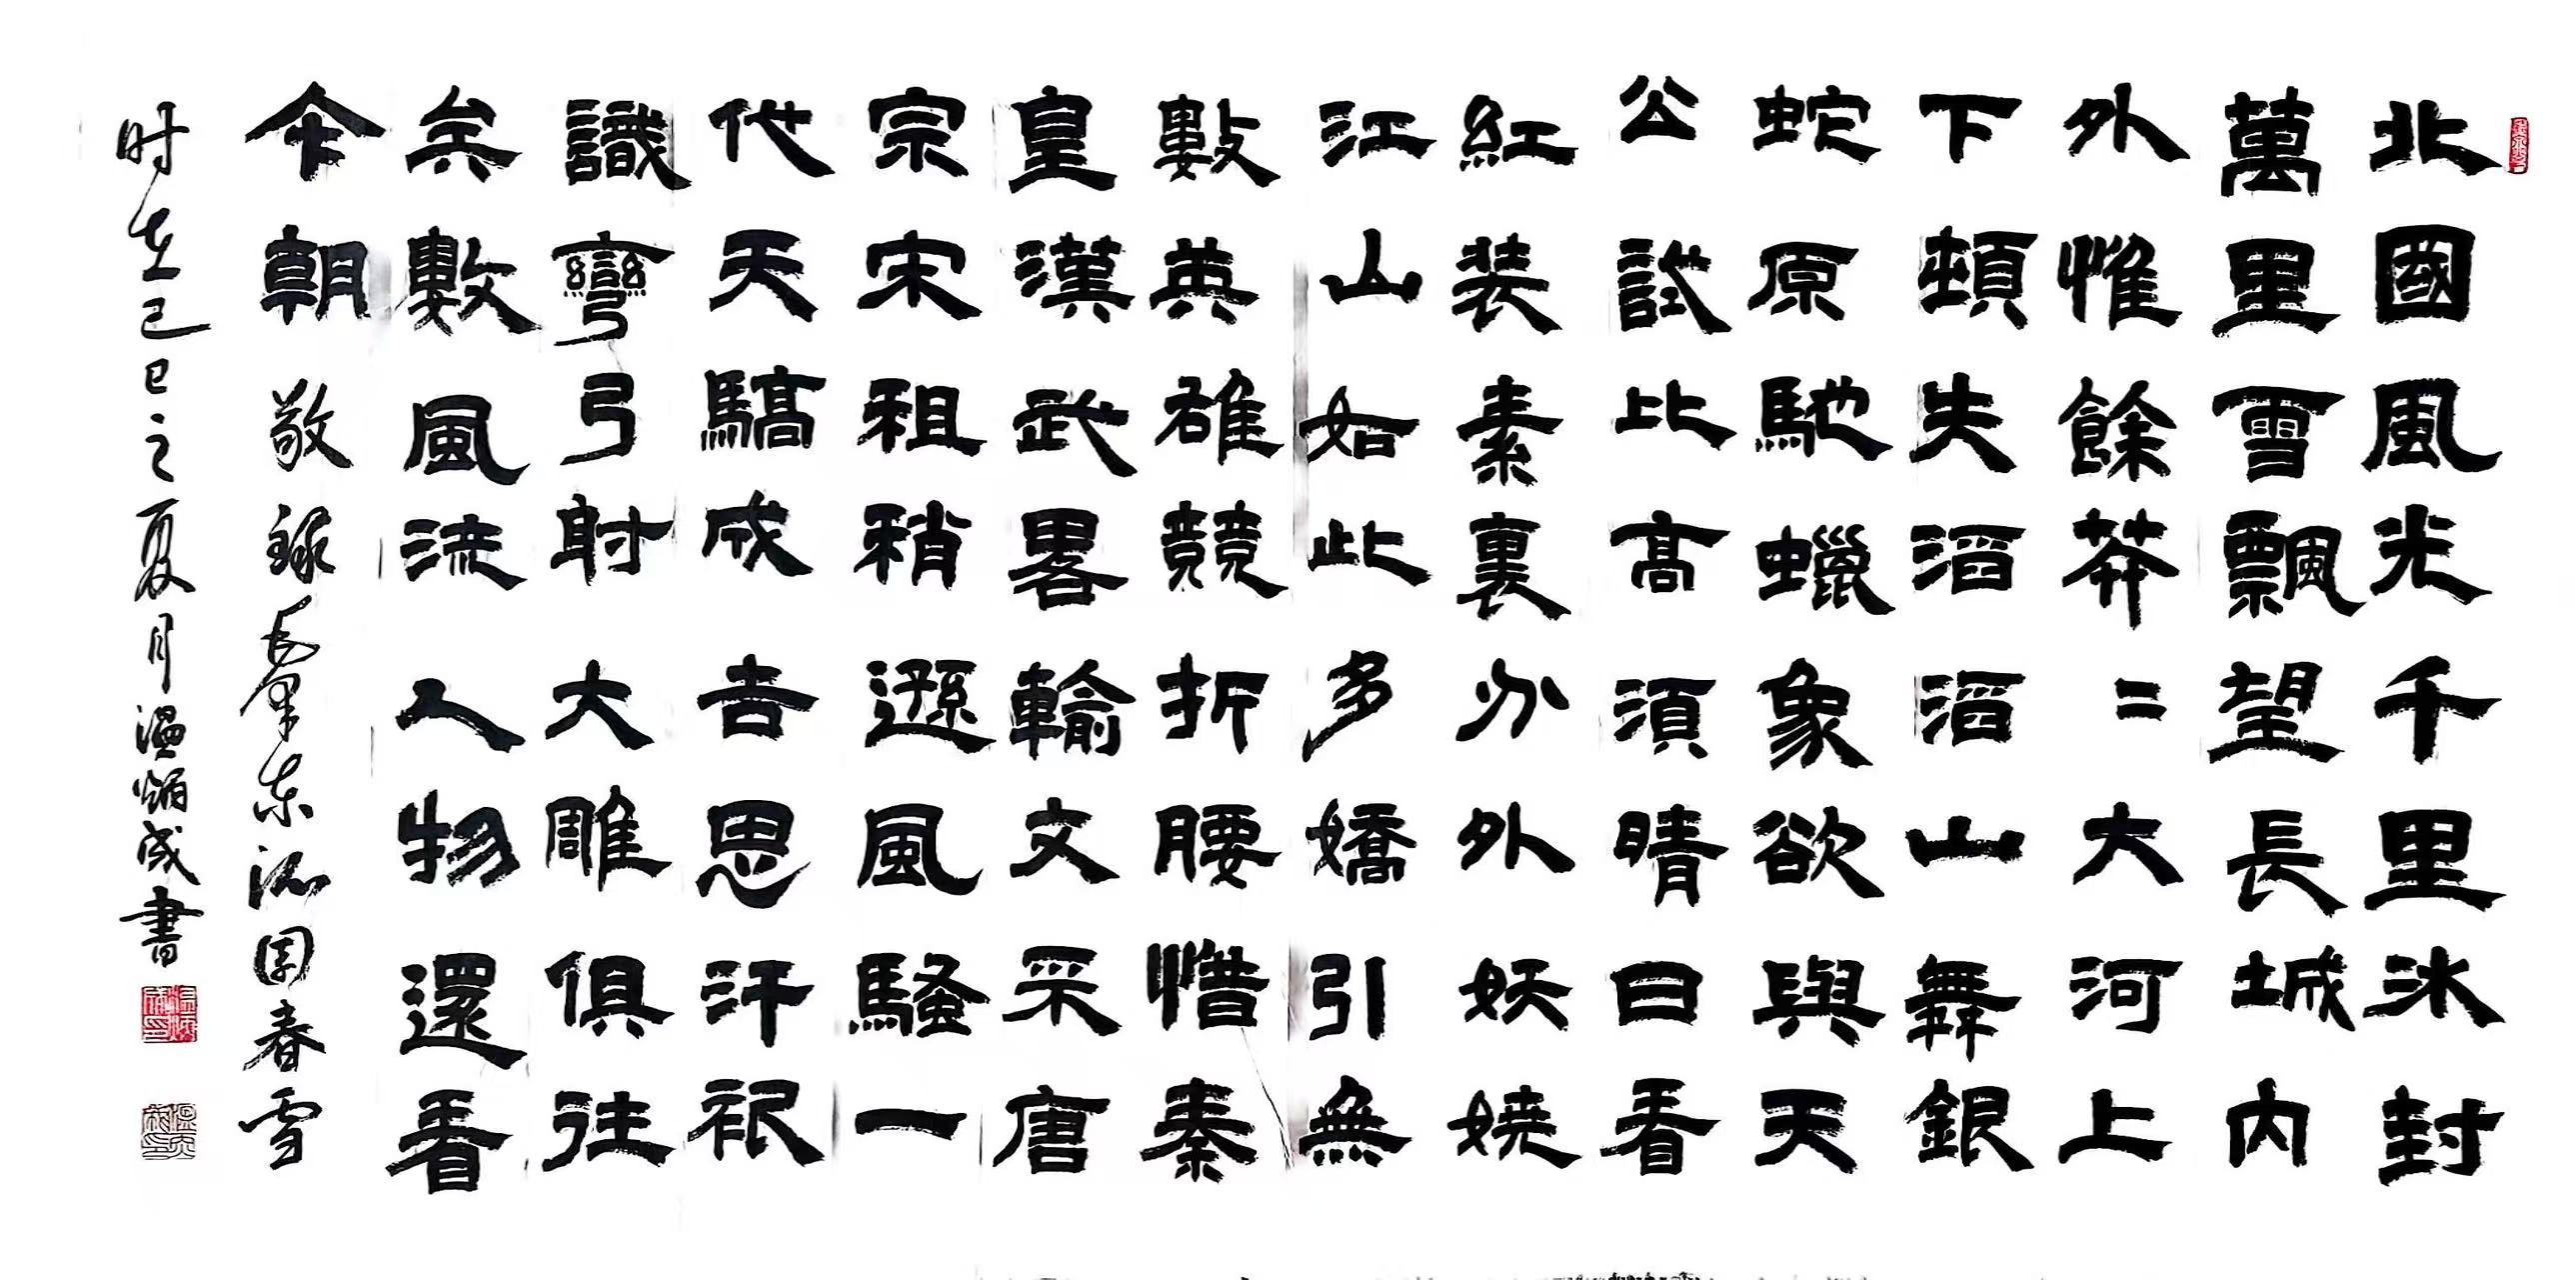 北國風光千里冰封
萬里雪飄望長城内
外惟餘莽〻大河上
下頓失滔滔山舞銀
蛇原馳蠟象欲與天
公試比高須晴日看
紅装素裹分外妖嬈
江山如此多嬌引無
數英雄競折腰惜秦
皇漢武畧輸文采唐
宗宋祖稍遜風騷一
代天驕成吉思汗祇
識彎弓射大雕俱往
矣數風流人物還看
今朝 敬録毛澤东沁园春雪
时在己巳之夏月温炳成書